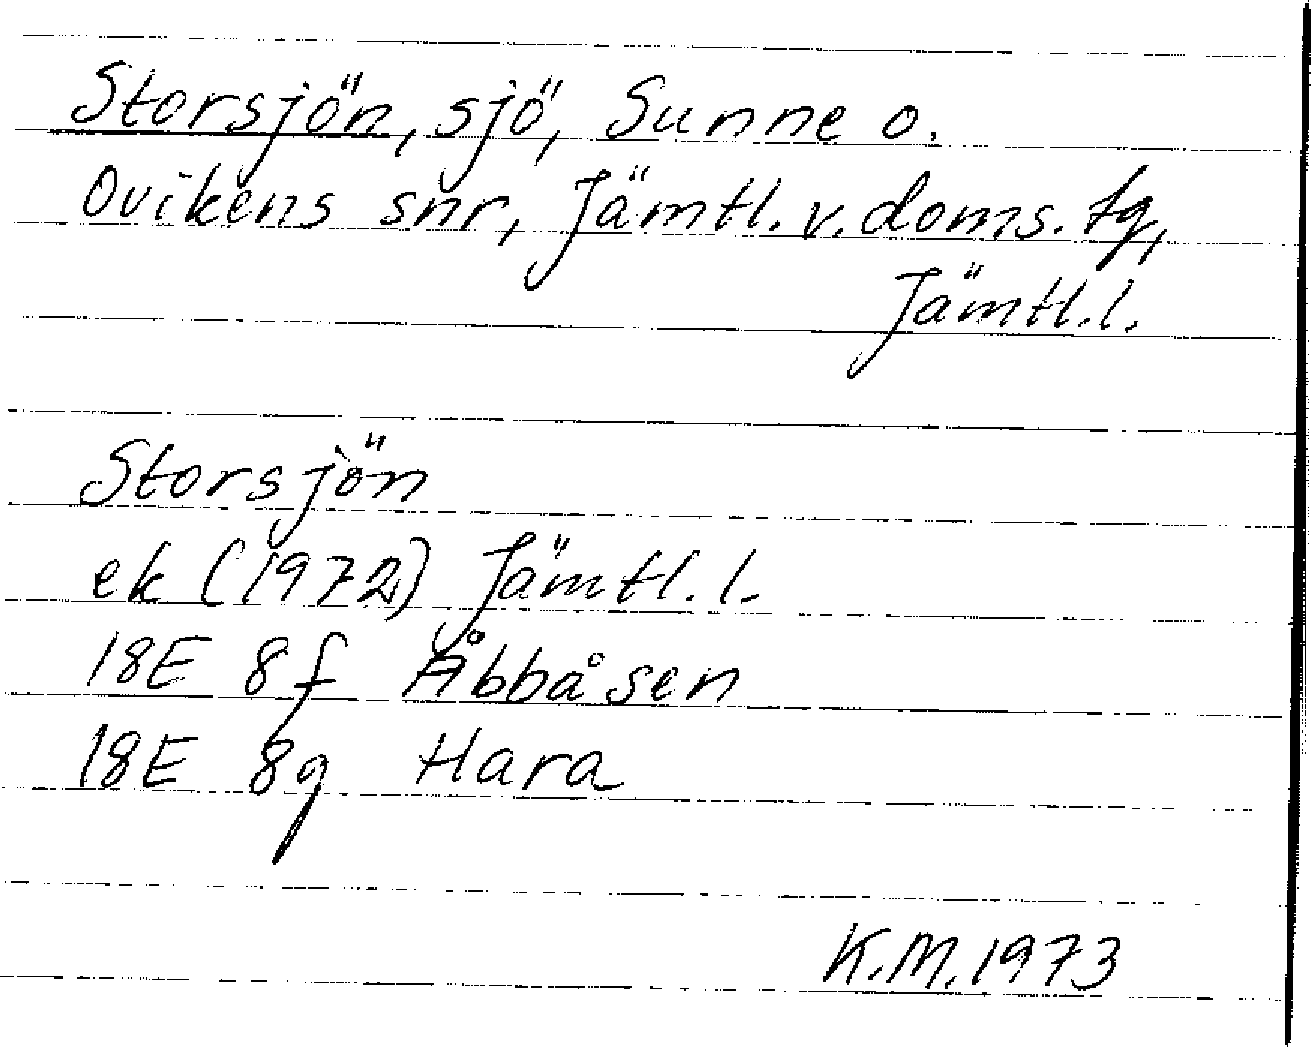 Storsjön, sjö, Sunne o.
Ovikens snr, Jämtl. v. doms. tg,
Jämtl. l.
Storsjön
ek (1972) Jämtl. l.
18E 8f Åbbåsen
18E 8g Hara
K.M. 1973